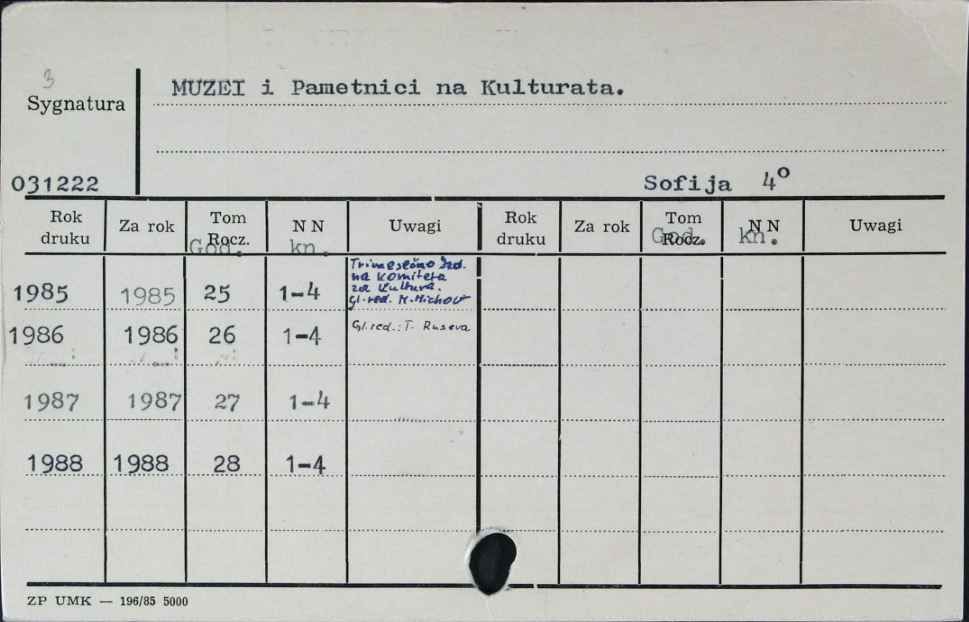 3
Sygnatura
MUZEI i Pametnici na Kulturata.
031222
Sofija 4°
Rok druku Za rok Tom Rocz. God. NN kn. Uwagi Rok druku Za rok Tom Rocz. God. NN kn. Uwagi
Trimesečno Izd.
na Komiteta
za Kultura.
1985 1985 25 1-4 gl. red. M. Michov
1986 1986 26 1-4 Gl. red.: T. Ruseva
1987 1987 27 1-4
1988 1988 28 1-4
ZP UMK — 196/85 5000